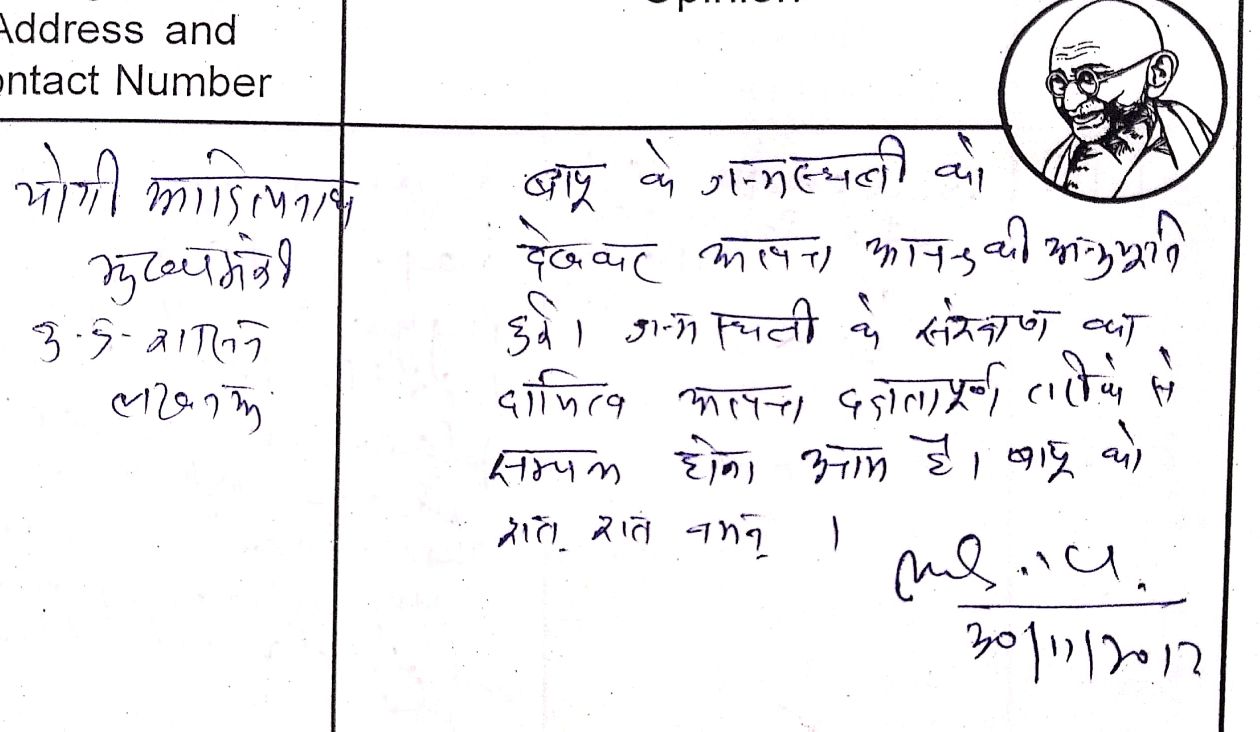 Opinion
Address and
ontact Number
योगी आदित्यनाथ
मुख्यमंत्री
उ.प्र. शासन
लखनऊ
बापू के जन्मस्थली को
देखकर अत्यन्त आनन्द की अनुभूति
हुई। जन्म स्थली के संरक्षण का
दायित्व अत्यन्त दक्षतापूर्ण तरीके से
सम्पन्न होना है। बापू को
शत् शत नमन् ।
30/11/2017